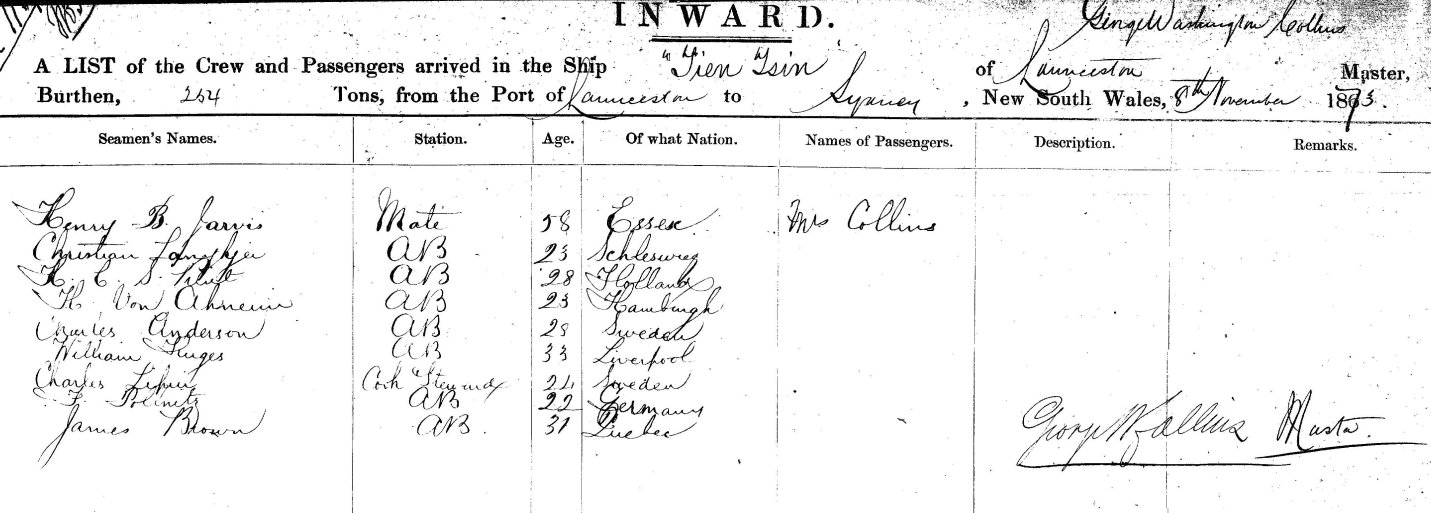 INWARD.
George Washington Collins
A LIST of the Crew and Passengers arrived in the Ship "Tien Tsin" of Launceston Master,
Burthen, 254 Tons, from the Port of Launceston to Sydney, New South Wales, 8th November 1873.
Seamen's Names. Station. Age. Of what Nation. Names of Passengers. Description. Remarks.
Henry B. Jarvis Mate 58 Essex Mrs Collins
Christian AB 23 Schleswig
H. C. S. AB 28 Holland
H. Von AB 23 Hamburgh
Charles Anderson AB 28 Sweden
William AB 33 Liverpool
Charles Cook Steward 24 Sweden
F. AB 22 Germany
James Brown AB 31 Quebec
George W Collins Master.